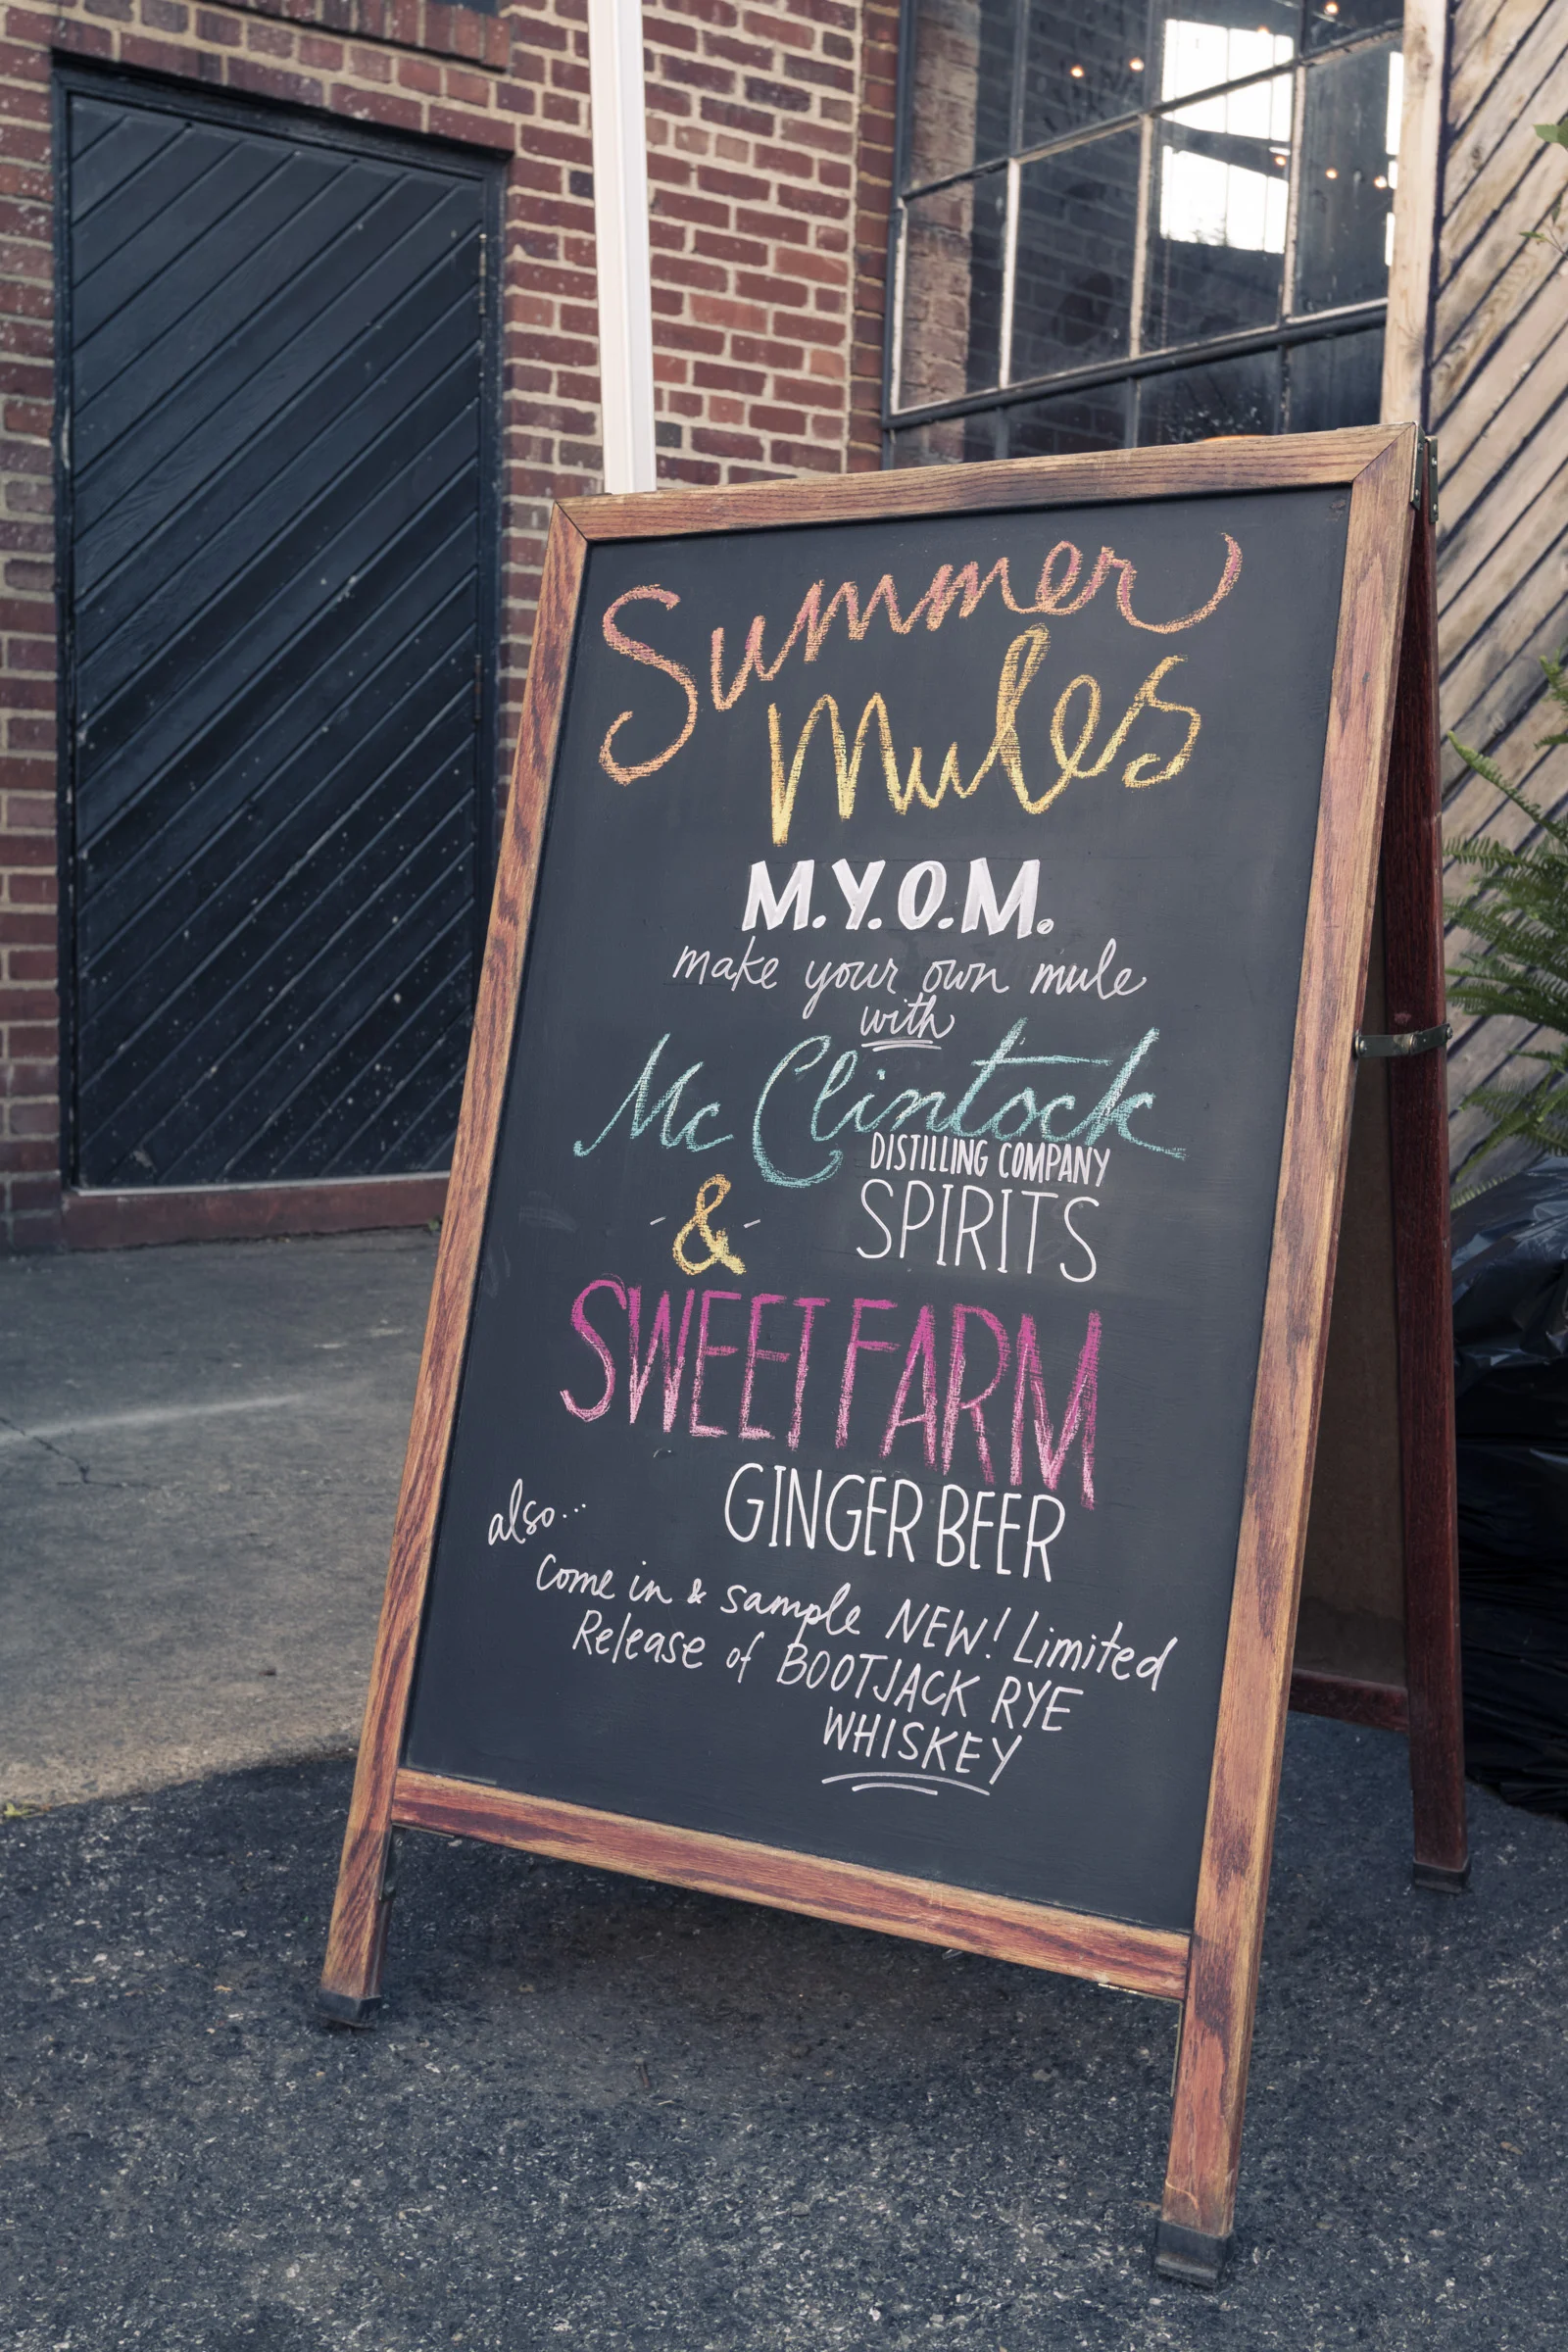 Summer
Mules
M.Y.O.M.
make your own mule
with
McClintock
DISTILLING COMPANY
SPIRITS
-&-
SWEET FARM
GINGER BEER
also...
Come in & sample NEW! Limited
Release of BOOTJACK RYE
WHISKEY